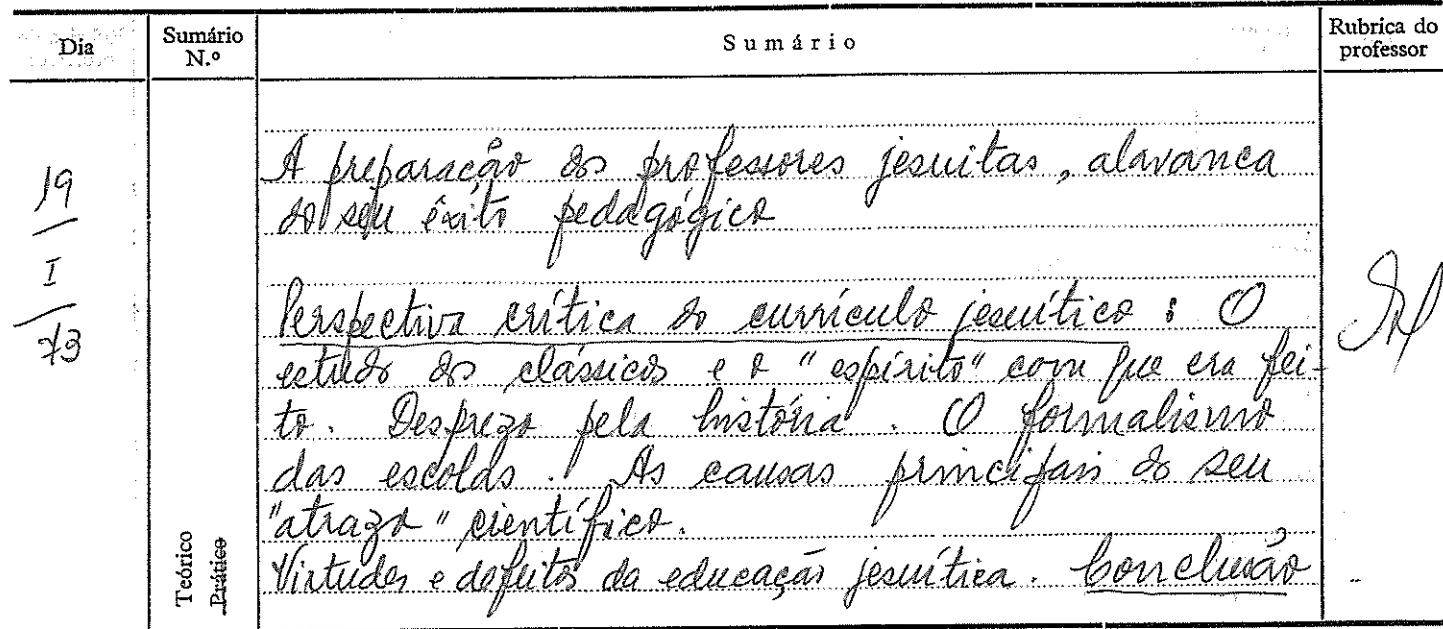 Dia
Sumário N.º
Sumário
Rubrica do professor
19
I
73
A preparação dos professores jesuitas, alavanca
do seu êxito pedagógico
Perspectiva crítica do currículo jesuítico : O
estudo dos clássicos e o "espírito" com que era fei-
to. Desprezo pela história. O formalismo
das escolas. As causas principais do seu
"atrazo" científico.
Virtudes e defeitos da educação jesuítica. Conclusão
Teórico
Prático